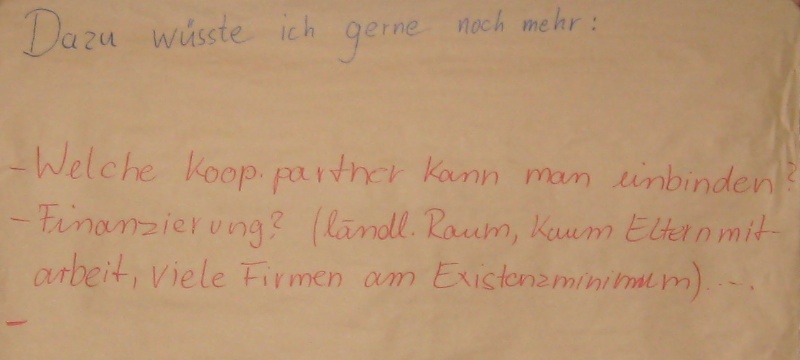 Dazu wüsste ich gerne noch mehr:
- Welche Koop.partner kann man einbinden?
- Finanzierung? (ländl. Raum, kaum Elternmit-
arbeit, viele Firmen am Existenzminimum)....
-